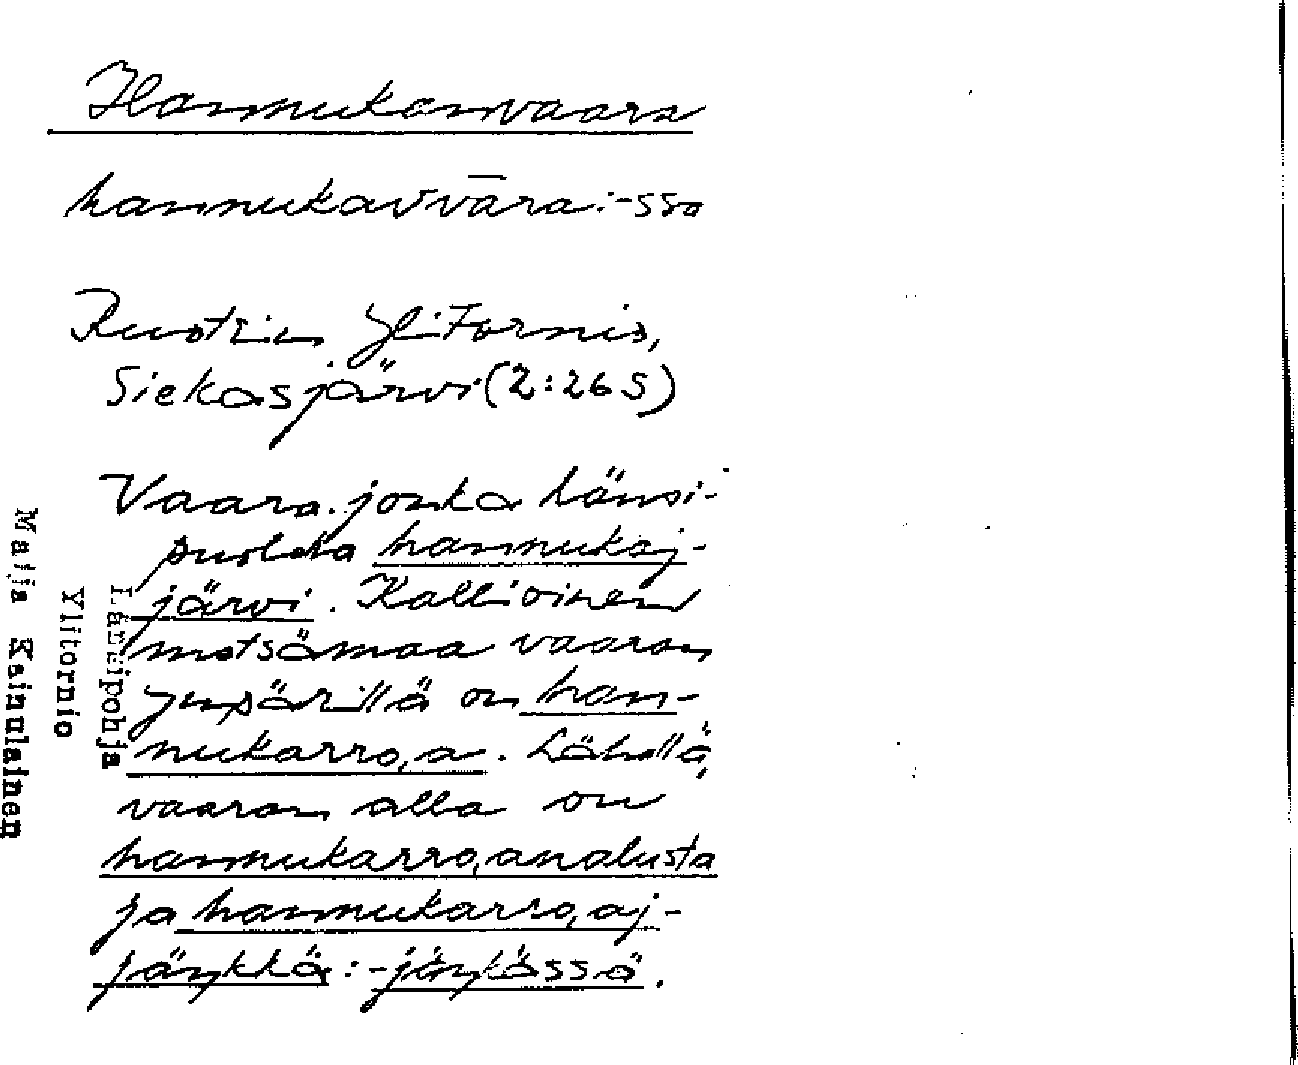 Hannukanvaara
hannukavvāra:-ssa
Ruotsin Ylitornio,
Siekasjärvi (2:265)
Vaara. jonka länsi-
puolella hannukaj-
järvi. Kallioinen
metsämaa vaaran
ympärillä on han-
nukarro,a. Lähellä,
vaaran alla on
hannukarro,analusta
ja hannukarro,aj-
jänkkä:-jänkässä.
Länsipohja
Ylitornio
Maija Kainulainen